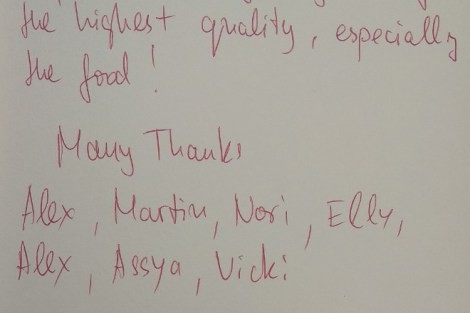 the highest quality, especially
the food!
Many Thanks
Alex, Martin, Nori, Elly,
Alex, Assya, Vicki